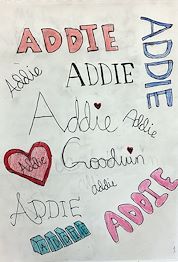 ADDIE
ADDIE
ADDIE
Addie
Addie
Addie
Addie
Goodwin
addie
ADDIE
ADDIE
ADDIE